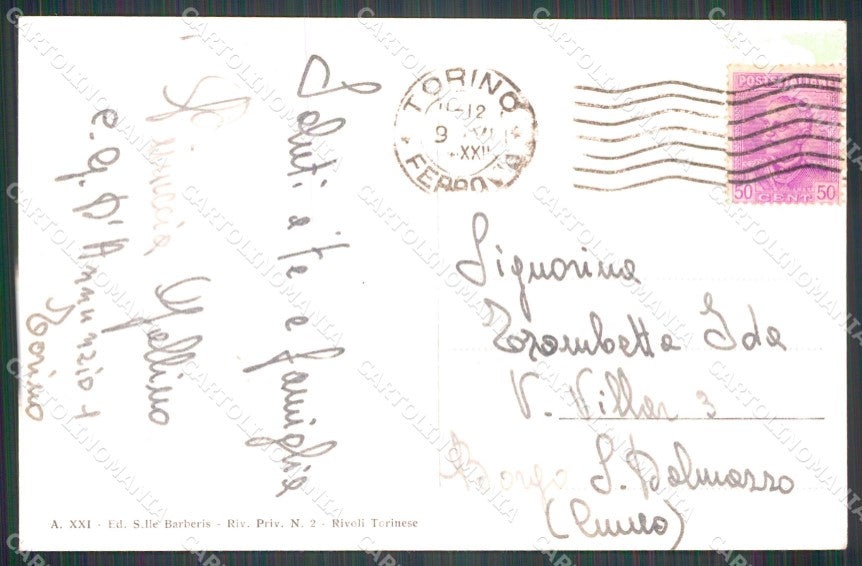 Saluti a te e famiglia
Mollino
C. G. D'Annunzio
Torino
TORINO
12
9
XXII
FERROVIA
POSTE ITALIANE
50 CENT 50
Signorina
Ida
V. Villar 3
Borgo S. Dalmazzo
(Cuneo)
A. XXI - Ed. S.lle Barberis - Riv. Priv. N. 2 - Rivoli Torinese
CARTOLINOMANIA